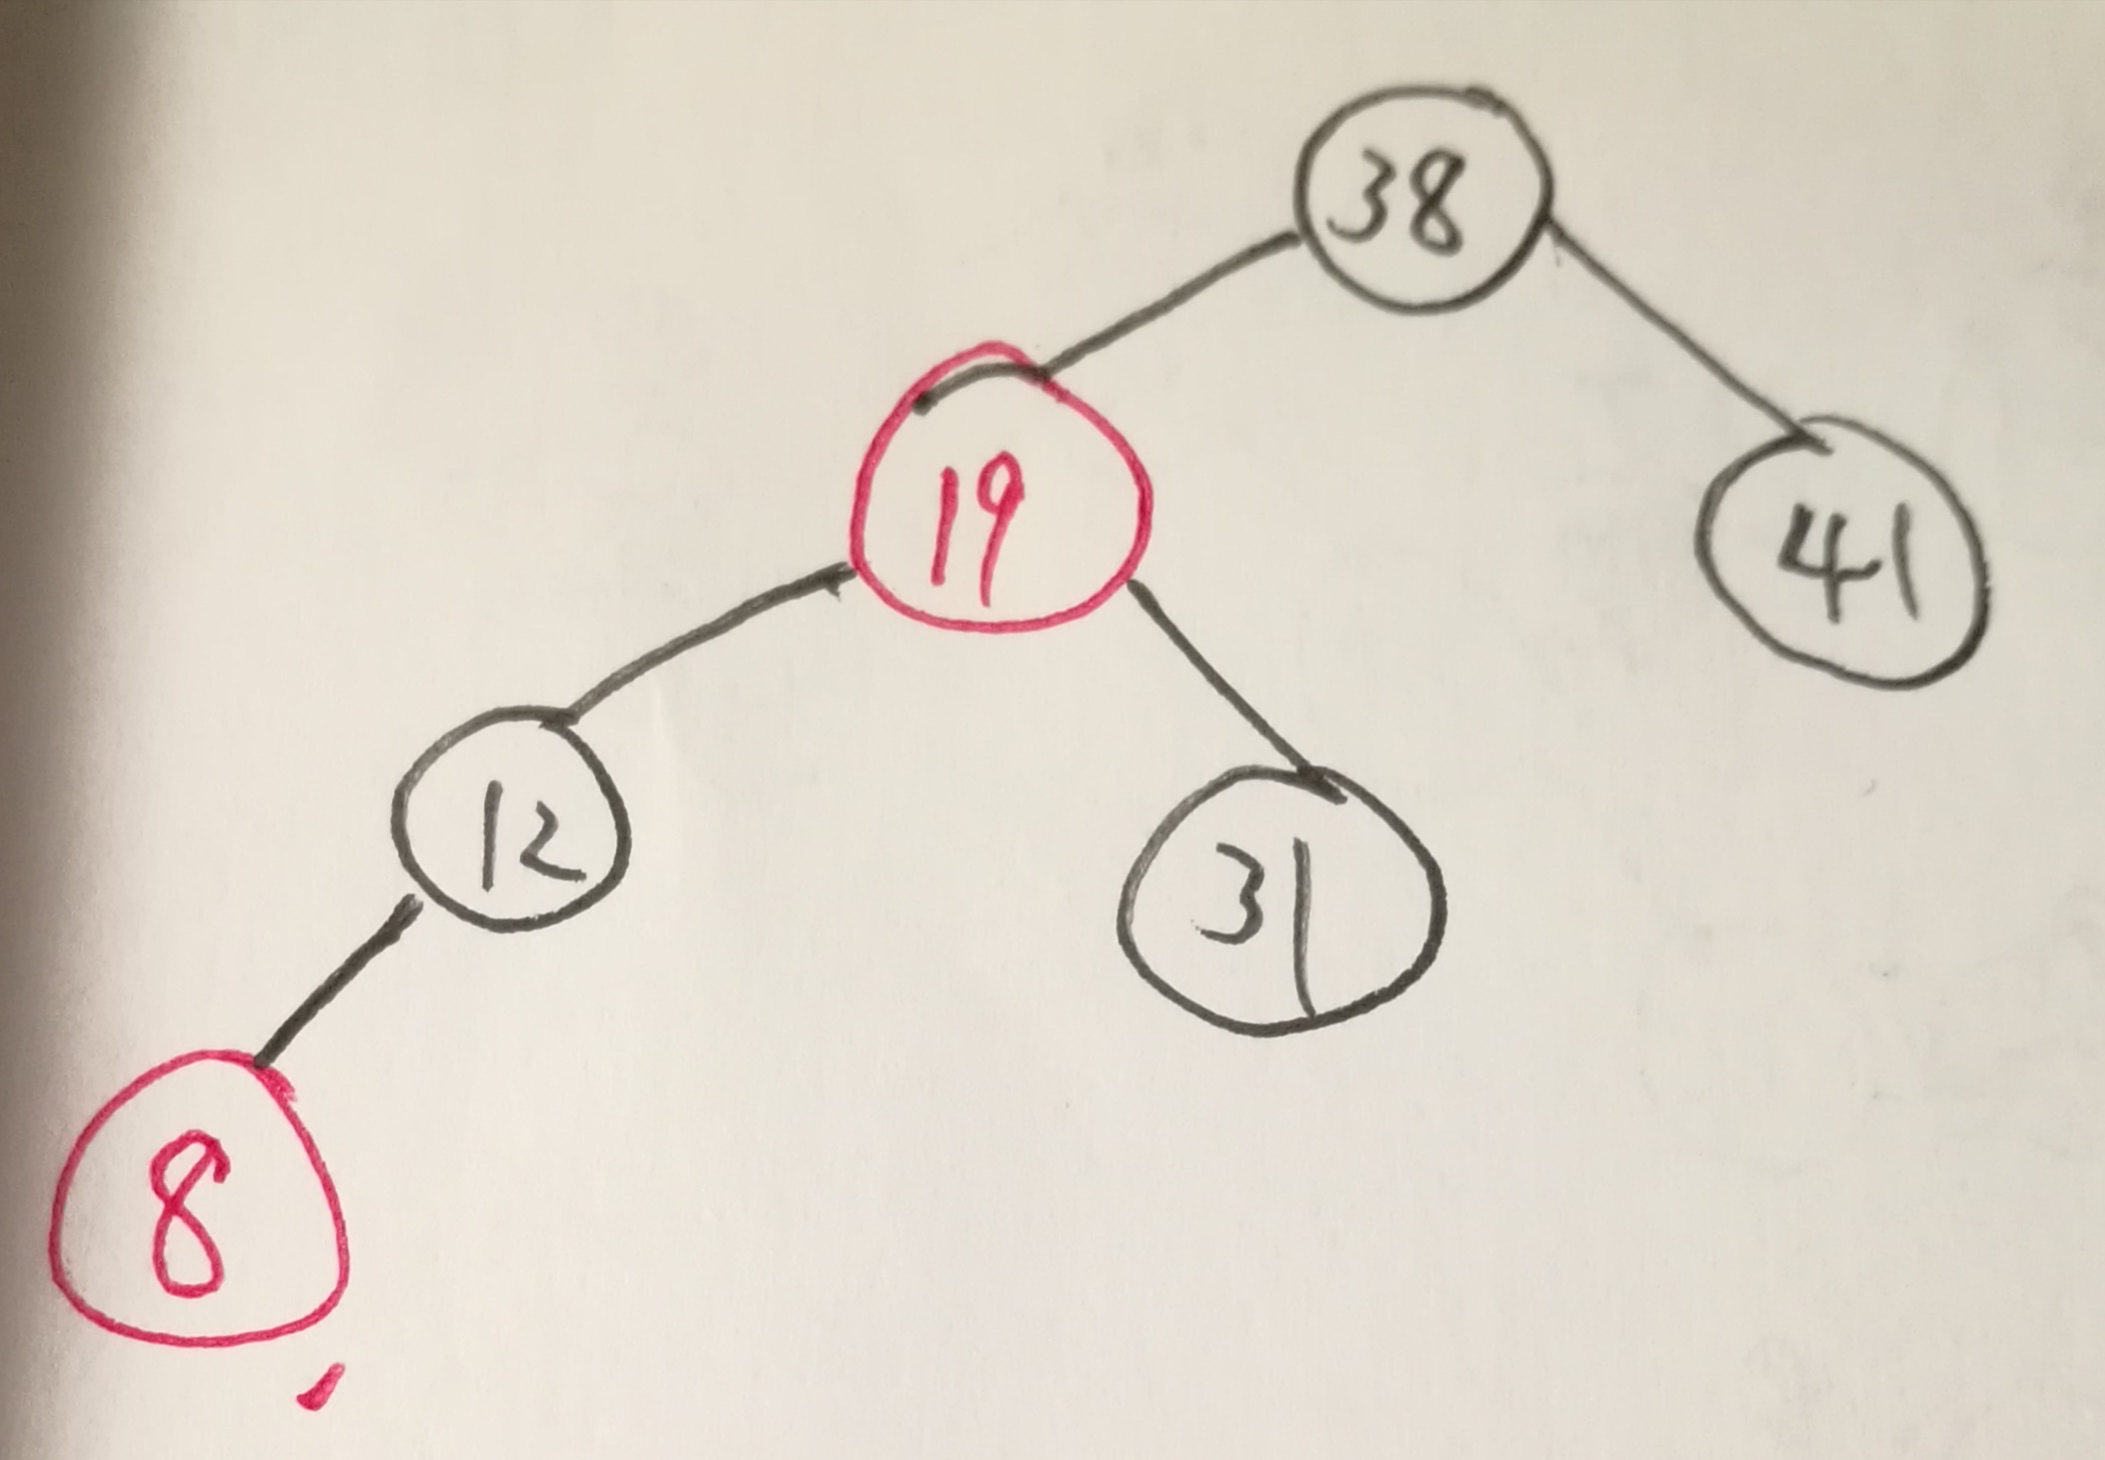 38
19
41
12
31
8